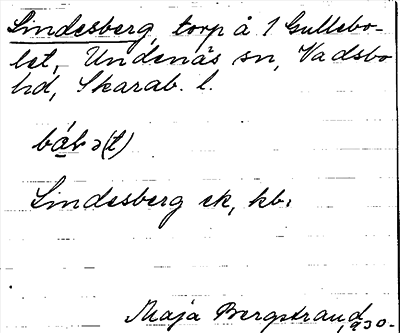 Lindesberg, torp å 1 Gullebo-
let, Undenäs sn, Vadsbo
hd, Skarab. l.
Lindesberg ek, kb.
Maja Bergstrand
1930.